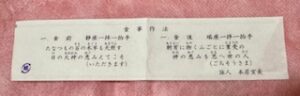 食事作法
一、食前 静座一拝一拍手
たなつもの百の木草も天照す
日の大神の恵みえてこそ
(いただきます)
一、食後 端座一拝一拍手
朝宵に物くふごとに豊受の
神の恵みを思へ世の人
(ごちそうさま)
詠人 本居宣長